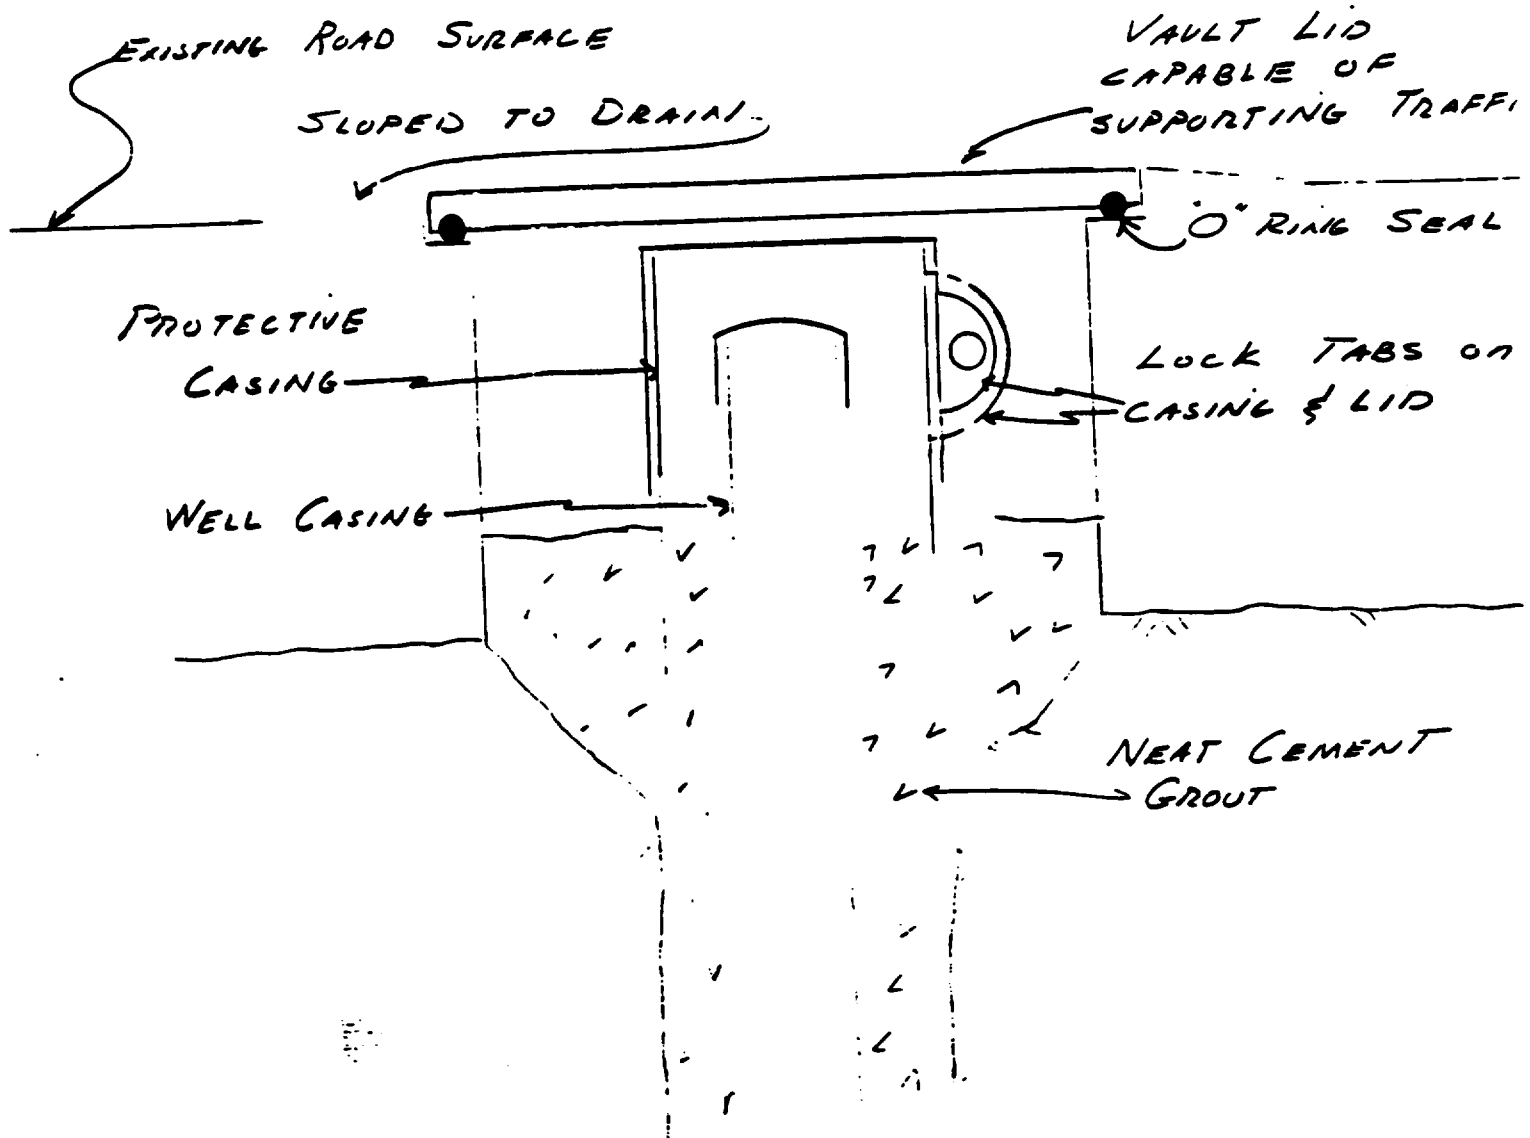 EXISTING ROAD SURFACE
SLOPED TO DRAIN
VAULT LID
CAPABLE OF
SUPPORTING TRAFFI
"O" RING SEAL
PROTECTIVE
CASING
LOCK TABS on
CASING & LID
WELL CASING
NEAT CEMENT
GROUT